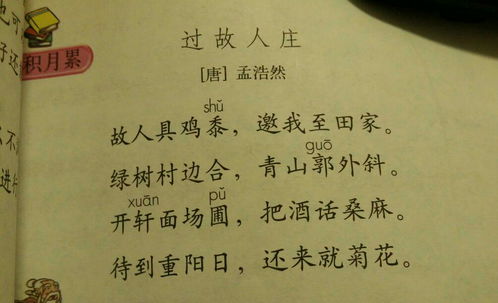 也可
好还
积月累
不
进行
过故人庄
[唐] 孟浩然
shǔ
故人具鸡黍，邀我至田家。
guō
绿树村边合，青山郭外斜。
xuān pǔ
开轩面场圃，把酒话桑麻。
待到重阳日，还来就菊花。